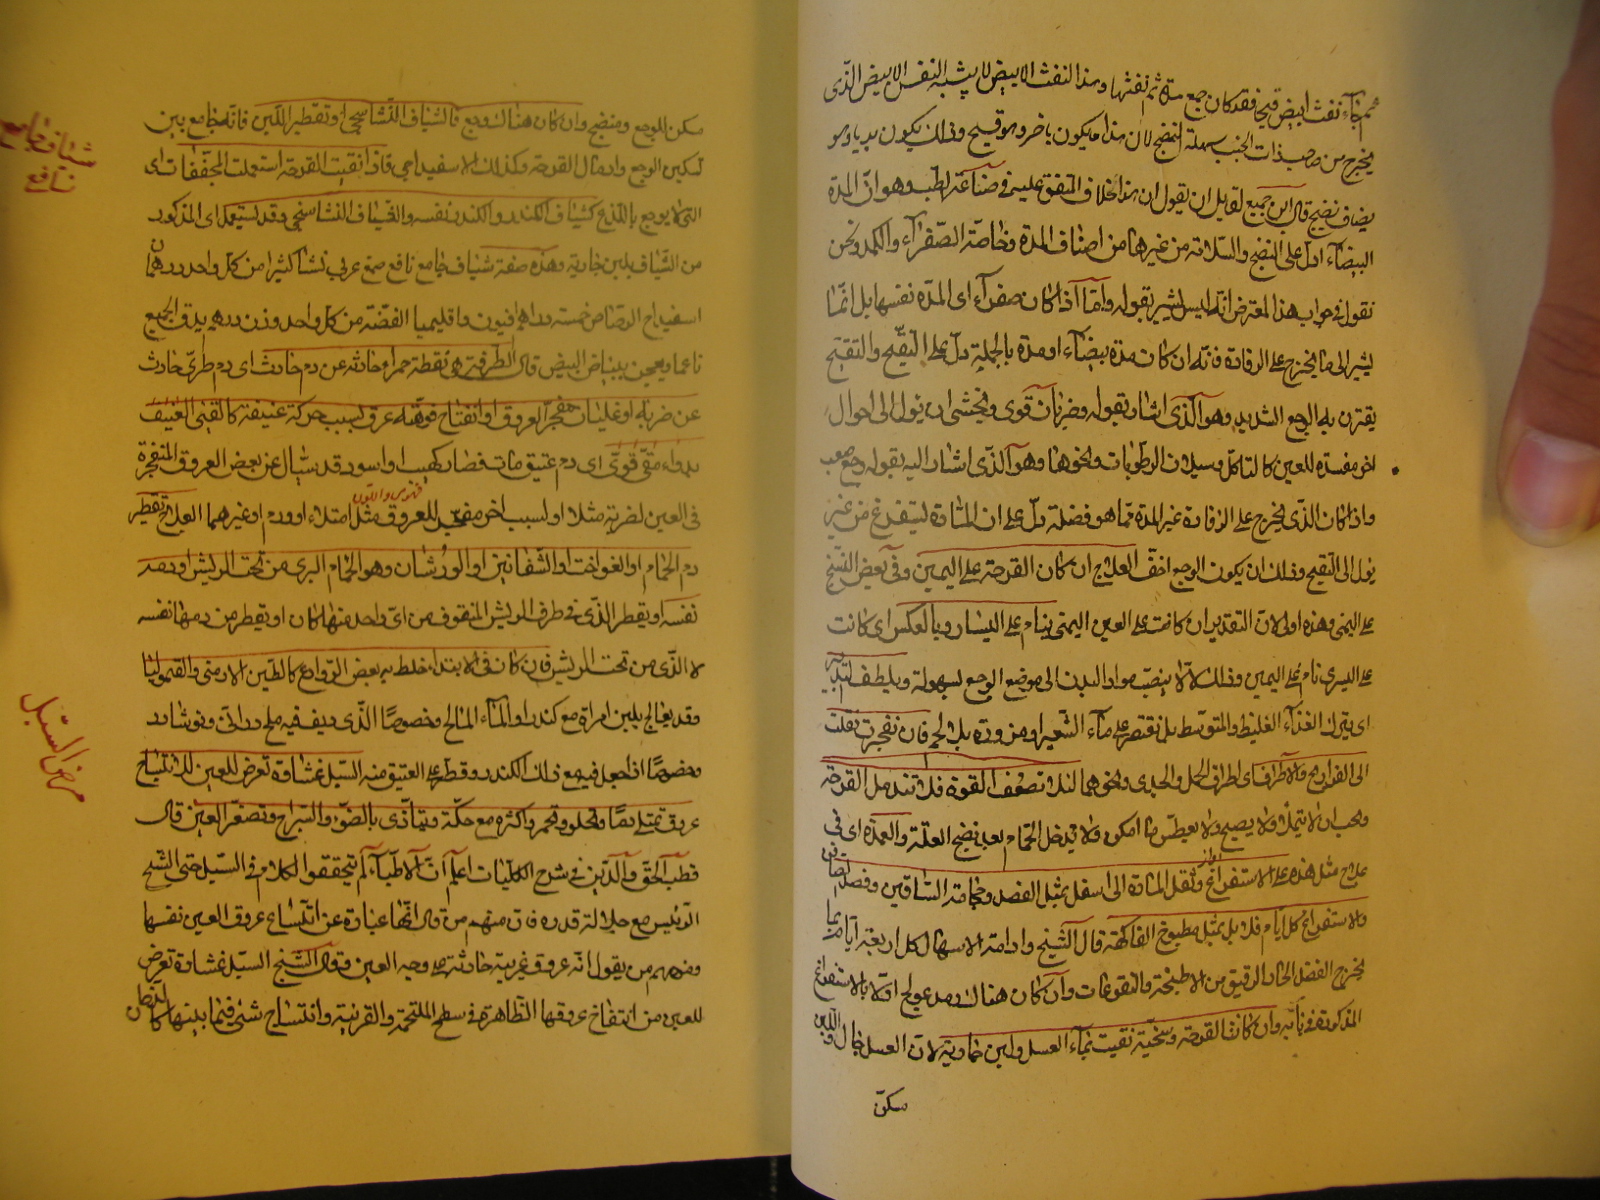 ثم جاء نفث ابيض قيحي فقد كان جمع مدة ثم نفثها وهذا النفث الابيض لا يشبه النفس الابيض الذى
يخرج من صاحب ذات الجنب بسهلة النضج لان هذا ما يكون باخره وهو قيح وذلك يكون بدياوهو
يضاف نضج قال ابن جميع لقايل ان يقول ان هذا خلاف المتفق عليه فى صناعة لطب وهو ان المدة
البيضاء ادل على النضج والسلامة من غيرها من اصناف المدة وخاصة الصفراء والكمد ونحن
نقول فى جواب هذا المعترض انه ليس يشير بقوله واما اذا كان صفراء اى المدة نفسها بل انما
يشير الى ما يخرج على الرفادة فانه ان كان مدة بيضاء او مدة بالجملة دل على التقيح والتقيح
يقترن به الوجع الشديد وهو الذى اشار بقوله وضربان قوى ويخشى ان يؤل الى احوال
اخر مفسدة للعين كالتاكل وسيلان الرطوبات ونحوها وهو الذى اشار اليه بقوله وجع صعب
واذا كان الذى يخرج على الرفادة غير المدة مما هو فضلة دل على ان المادة ليستفرغ من غير
يؤل الى التقيح وذلك ان يكون الوجع اخف العلاج ان كان القرحة على اليمين وفى بعض النسخ
على اليمنى وهذه اولى لان التقدير ان كانت على العين اليمنى ينام على اليسار وبالعكس اى كانت
على اليسرى نام على اليمين وذلك لئلا ينصب مواد البدن الى موضع الوجع بسهولة ويلطف لتدبير
اى يترك الغذاء الغليظ والمتوسط بل يقتصر على ماء الشعير او مزورة بلا لحم فان نفجرت نقلت
الى الفراريج والاطراف اى اطراف الحمل والجدى ونحوهما لئلا تضعف القوة فلا تندمل القرحة
ويجب ان لا يتملا ولا يصيح ولا يعطس ما امكن ولا يدخل الحمام بعد نضج العلة والعمدة اى فى
علاج مثل هذه على الاستفراغ ونقل المادة الى اسفل بمثل الفصد وحجامة الساقين وفصد الصافن
والاستفراغ كل ايام قلايل بمثل مطبوخ الفاكهة قال الشيخ وادامة الاسهال كل اربعة ايام بما
يخرج الفضل الحار الرقيق من الاطبخة والنقوعات وان كان هناك رمد عولج اولا بالاستفراغ
المذكورة فى بابه وان كانت القرحة وسخة نقيت بماء العسل ولبن جارية لان العسل جال واللبن
مسكن
مسكن للوجع ومنضج وان كان هناك وجع فالشياف النشاسجى او تقطير اللبن فانه جامع بين
تسكين الوجع وادمال القرحة وكذلك الاسفيداجى فاذا نقيت القرحة استعملت المجففات اى
التى لا يوجع باللذع كشياف الكندر والكندر نفسه والشياف النشاسجى وقد يستعمل اى المذكور
من الشياف بلبن جارية وهذه صفة شياف جامع نافع صمغ عربى نشا كثيرا من كل واحد درهمان
اسفيداج الرصاص خمسة دراهم افيون واقليميا الفضة من كل واحد وزن درهم يدق الجميع
ناعما ويعجن ببياض البيض قال الطرفة هى نقطة حمراء حادثة عن دم حادث اى دم طرى حادث
عن ضربة او غليان مفجر العروق او انفتاح فوهة عرق بسبب حركة عنيفة كالقئ العنيف
بدواء مقئ قوى اى دم عتيق مات فصار كهبا واسود قد سال عن بعض العروق المنفجرة
فى العين لضربة مثلا او لسبب اخر مفجر للعروق مثل امتلاء او ورم او غيرهما العلاج تقطير
دم الحمام او الفواخت او الشفانين او الورشان وهو الحمام البرى من تحت الريش او دمه
نفسه او يقطر الذى فى طرف الريش المنتوف من اى واحد منها كان او يقطر من دمها نفسه
لا الذى من تحت الريش فان كان فى الابتداء خلط به بعض الروادع كالطين الارمنى والقيموليا
وقد يعالج بلبن امراة مع كندر او الماء المالح وخصوصا الذى ديف فيه ملح درانى ونوشادر
وخصوصا اذا جعل فيه مع ذلك الكندر وقطر على العتيق منه السبل غشاوة تعرض للعين لانتساج
عروق تمتلى دما وتحلو وتحمر واكثره مع حكة ويتاذى بالضوء والسراج وتصغر العين قال
قطب الحق والدين فى شرح الكليات اعلم ان الاطباء لم يحققوا الكلام فى السبل حتى الشيخ
الرئيس مع جلالة قدره فان منهم من قال انها عبارة عن اتساع عروق العين نفسها
ومنهم من يقول انه عروق غريبة حادثة على وجه العين وقال الشيخ السبل غشاوة تعرض
للعين من انتفاخ عروقها الظاهرة فى سطح الملتحمة والقرنية وانتساج شئ فيما بينها كالدخان
شياف جامع
نافع
مرض السبل